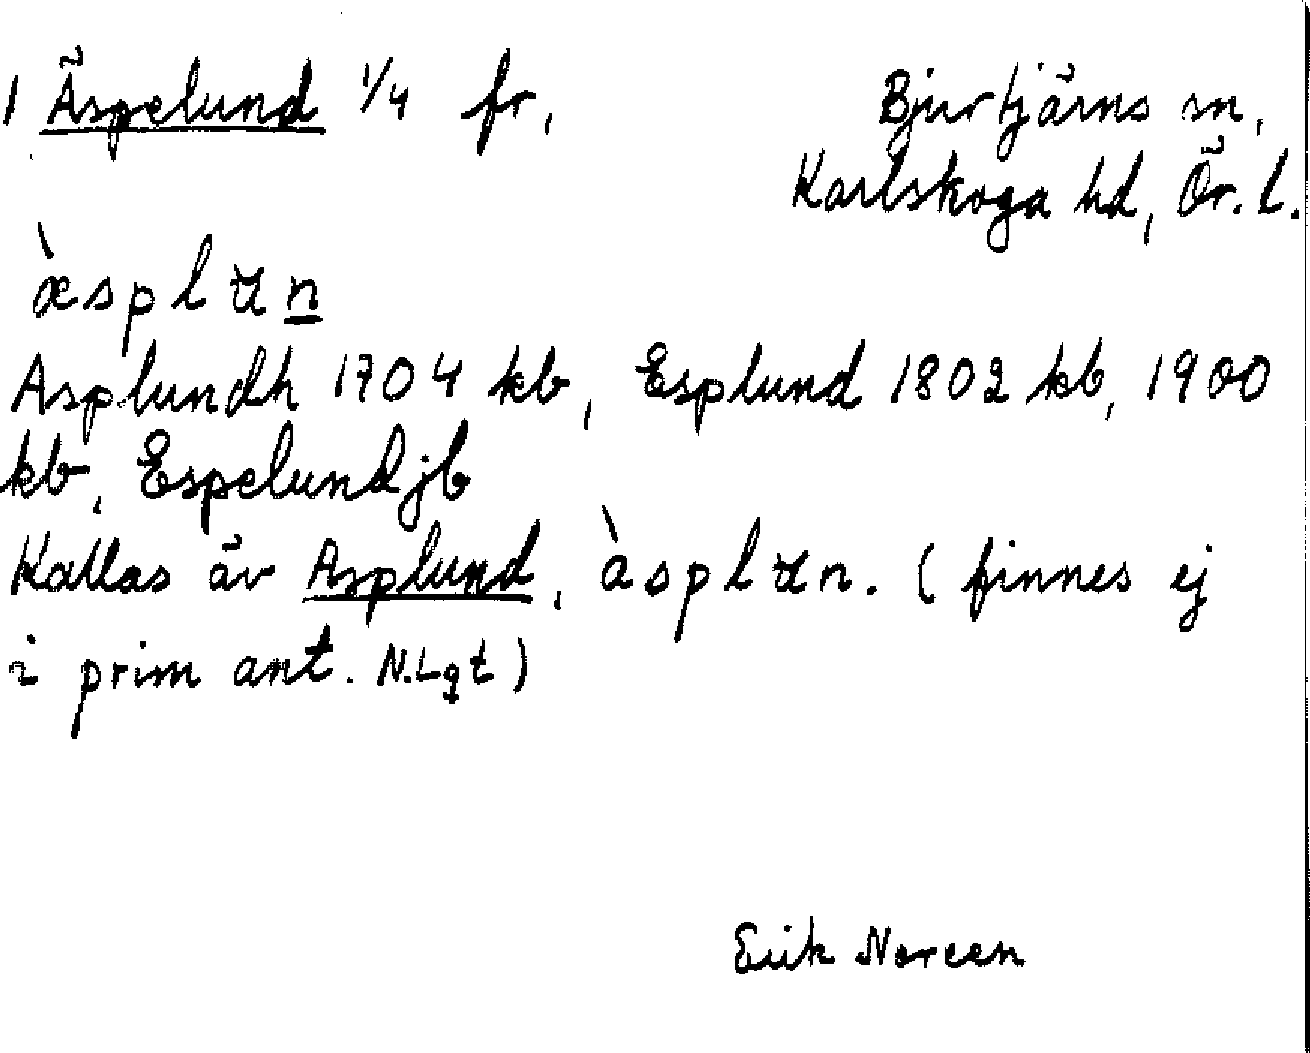 1 Äspelund 1/4 fr,
Bjurtjärns sn,
Karlskoga hd, Ör. l.
æ̀splʉn
Asplundh 1704 kb, Esplund 1802 kb, 1900
kb, Espelund jb
Kallas äv Asplund, àsplʉn. (finnes ej
i prim ant. N.Lgt)
Erik Noreen